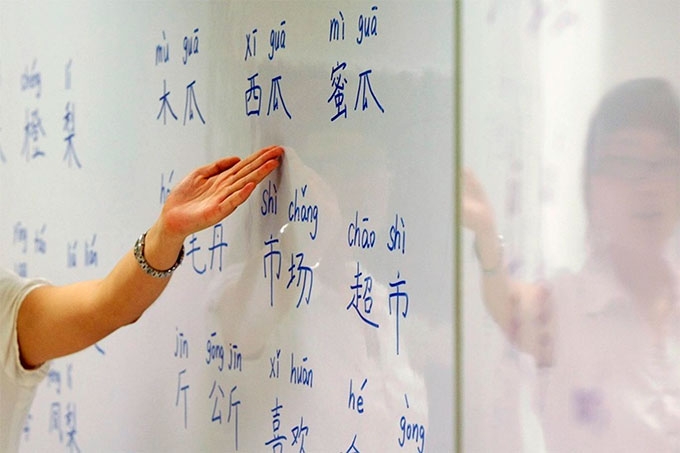 chéng lí mù guā xī guā mì guā
橙 梨 木瓜 西瓜 蜜瓜
shì chǎng chāo shì
毛丹 市场 超市
lián
jīn gōng jīn xǐ huān hé gòng
斤 公斤 喜欢
lí
凤梨